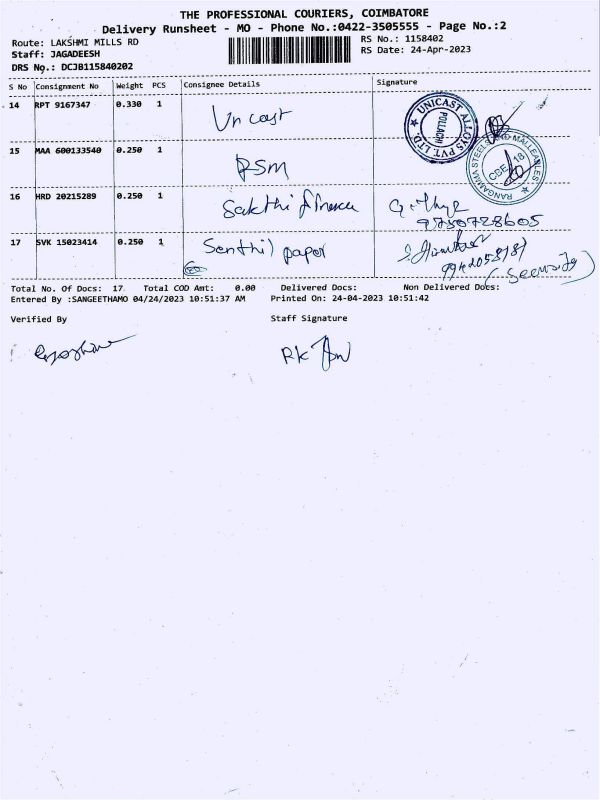 THE PROFESSIONAL COURIERS, COIMBATORE
Delivery Runsheet - MO - Phone No.:0422-3505555 - Page No.:2
Route: LAKSHMI MILLS RD
RS No.: 1158402
Staff: JAGADEESH
RS Date: 24-Apr-2023
DRS No.: DCJB115840202
S No Consignment No Weight PCS Consignee Details Signature
14 RPT 9167347 0.330 1 Unicast
UNICAST ALLOYS PVT. LTD. POLLACHI
15 MAA 600133540 0.250 1 RSM
RANGAMMA STEELS AND MALLEABLES CBE 18
16 HRD 20215289 0.250 1 Sakthi finance
9750728605
17 SVK 15023414 0.250 1 Senthil paper
(Security)
Total No. Of Docs: 17 Total COD Amt: 0.00 Delivered Docs: Non Delivered Docs:
Entered By :SANGEETHAMO 04/24/2023 10:51:37 AM Printed On: 24-04-2023 10:51:42
Verified By Staff Signature
RK